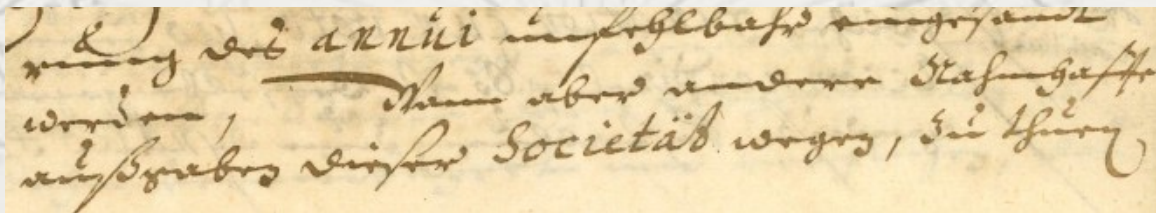 rung des annui unfehlbahr eingesandt
werden, Wann aber andere Nahmhaffte
außgaben dieser Societät wegen, zu thuen